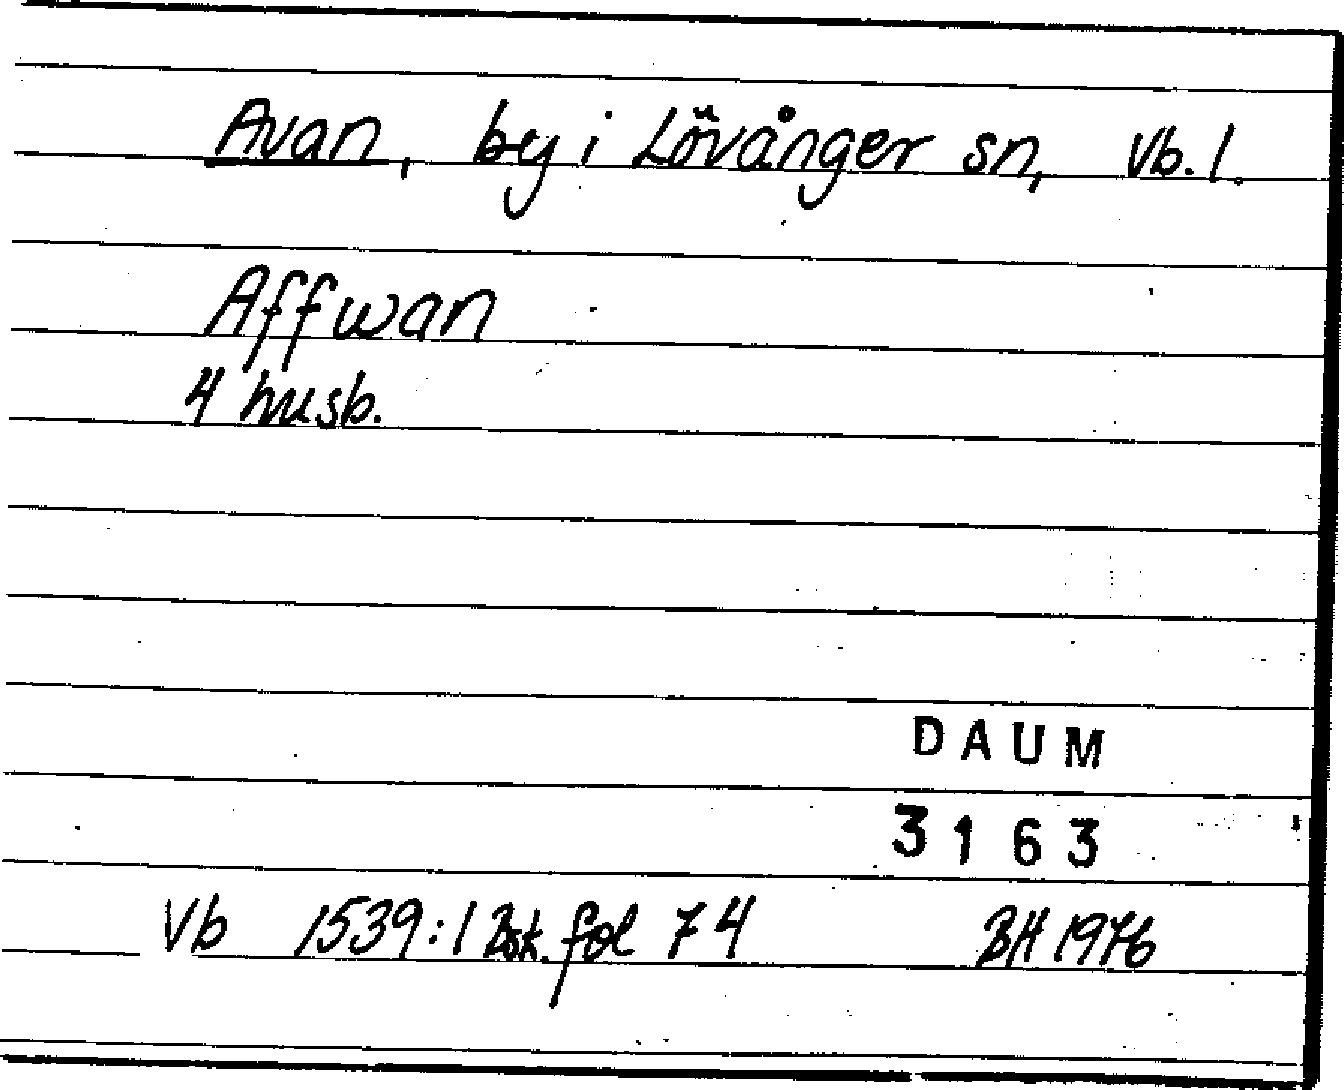 Avan, by i Lövånger sn, Vb. l.
Affwan
4 husb.
DAUM
3163
Vb 1539:1 fol 74 BH 1976